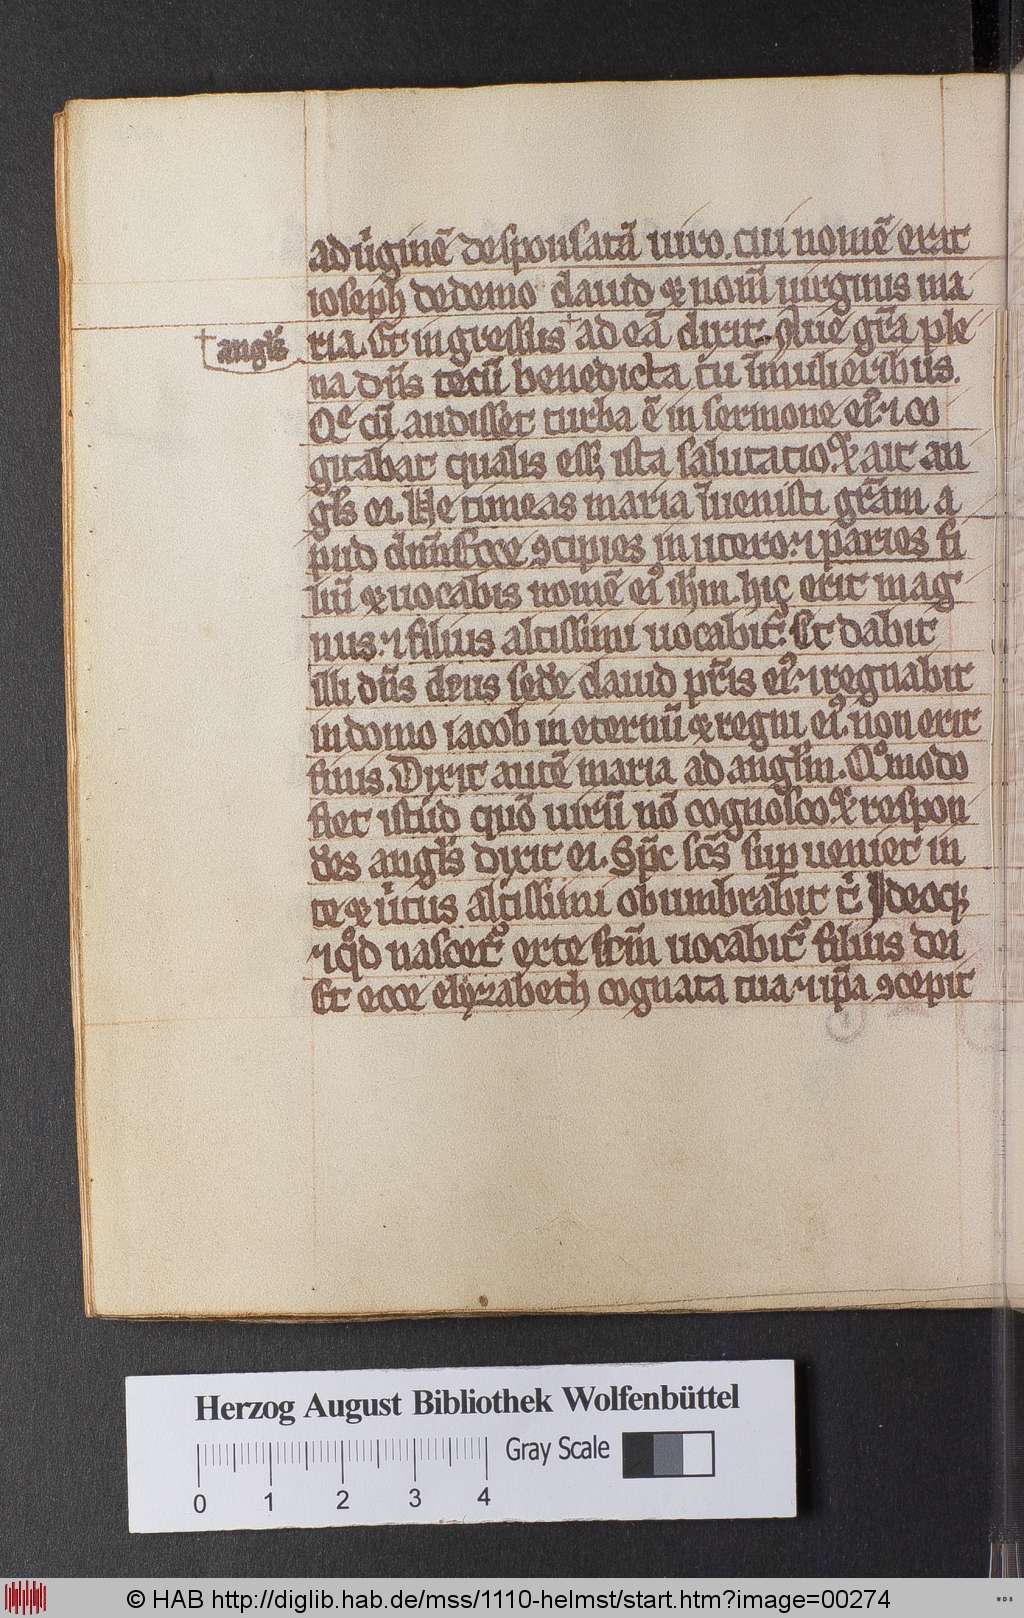 ad uͥginē desponsatā uiro. cui nomē erit
ioseph de domo dauid ⁊ nom̄ uirginis ma
† angl̄s
ria. Et ingressus † ad eā dixit. Aue gr̄a ple
na dn̄s tecū benedicta tu ī mulieribus.
Qͤ cū audisset turbata ē in sermone eiꝰ ⁊ co
gitabat qualis eēt ista salutatio. ⁊ ait an
gl̄s ei. Ne timeas maria īuenisti gr̄am a
pud dn̄m Ecce ꝯcipies in utero. ⁊ paries fi
liū ⁊ uocabis nomē eiꝰ ih̄m. hic erit mag
nus. ⁊ filius altissimi uocabit᷑. Et dabit
illi dn̄s deus sedē dauid pr̄is eiꝰ. ⁊ regnabit
in domo iacob in eternū ⁊ regni eiꝰ. non erit
finis. Dixit autē maria ad angl̄m. Qͦmodo
fiet istud quō uirū nō cognosco. ⁊ respon
dēs angl̄s dixit ei. Sp̄c sc̄s sup ueniet in
te ⁊ uͥtus altissimi obumbrabit tͥ Ideoqꝫ
⁊ qͦd nascet᷑ ex te sc̄m uocabit᷑ filius dei
Et ecce elyzabeth cognata tua ⁊ ip̄a ꝯcepit
Herzog August Bibliothek Wolfenbüttel
Gray Scale
0 1 2 3 4
© HAB http://diglib.hab.de/mss/1110-helmst/start.htm?image=00274